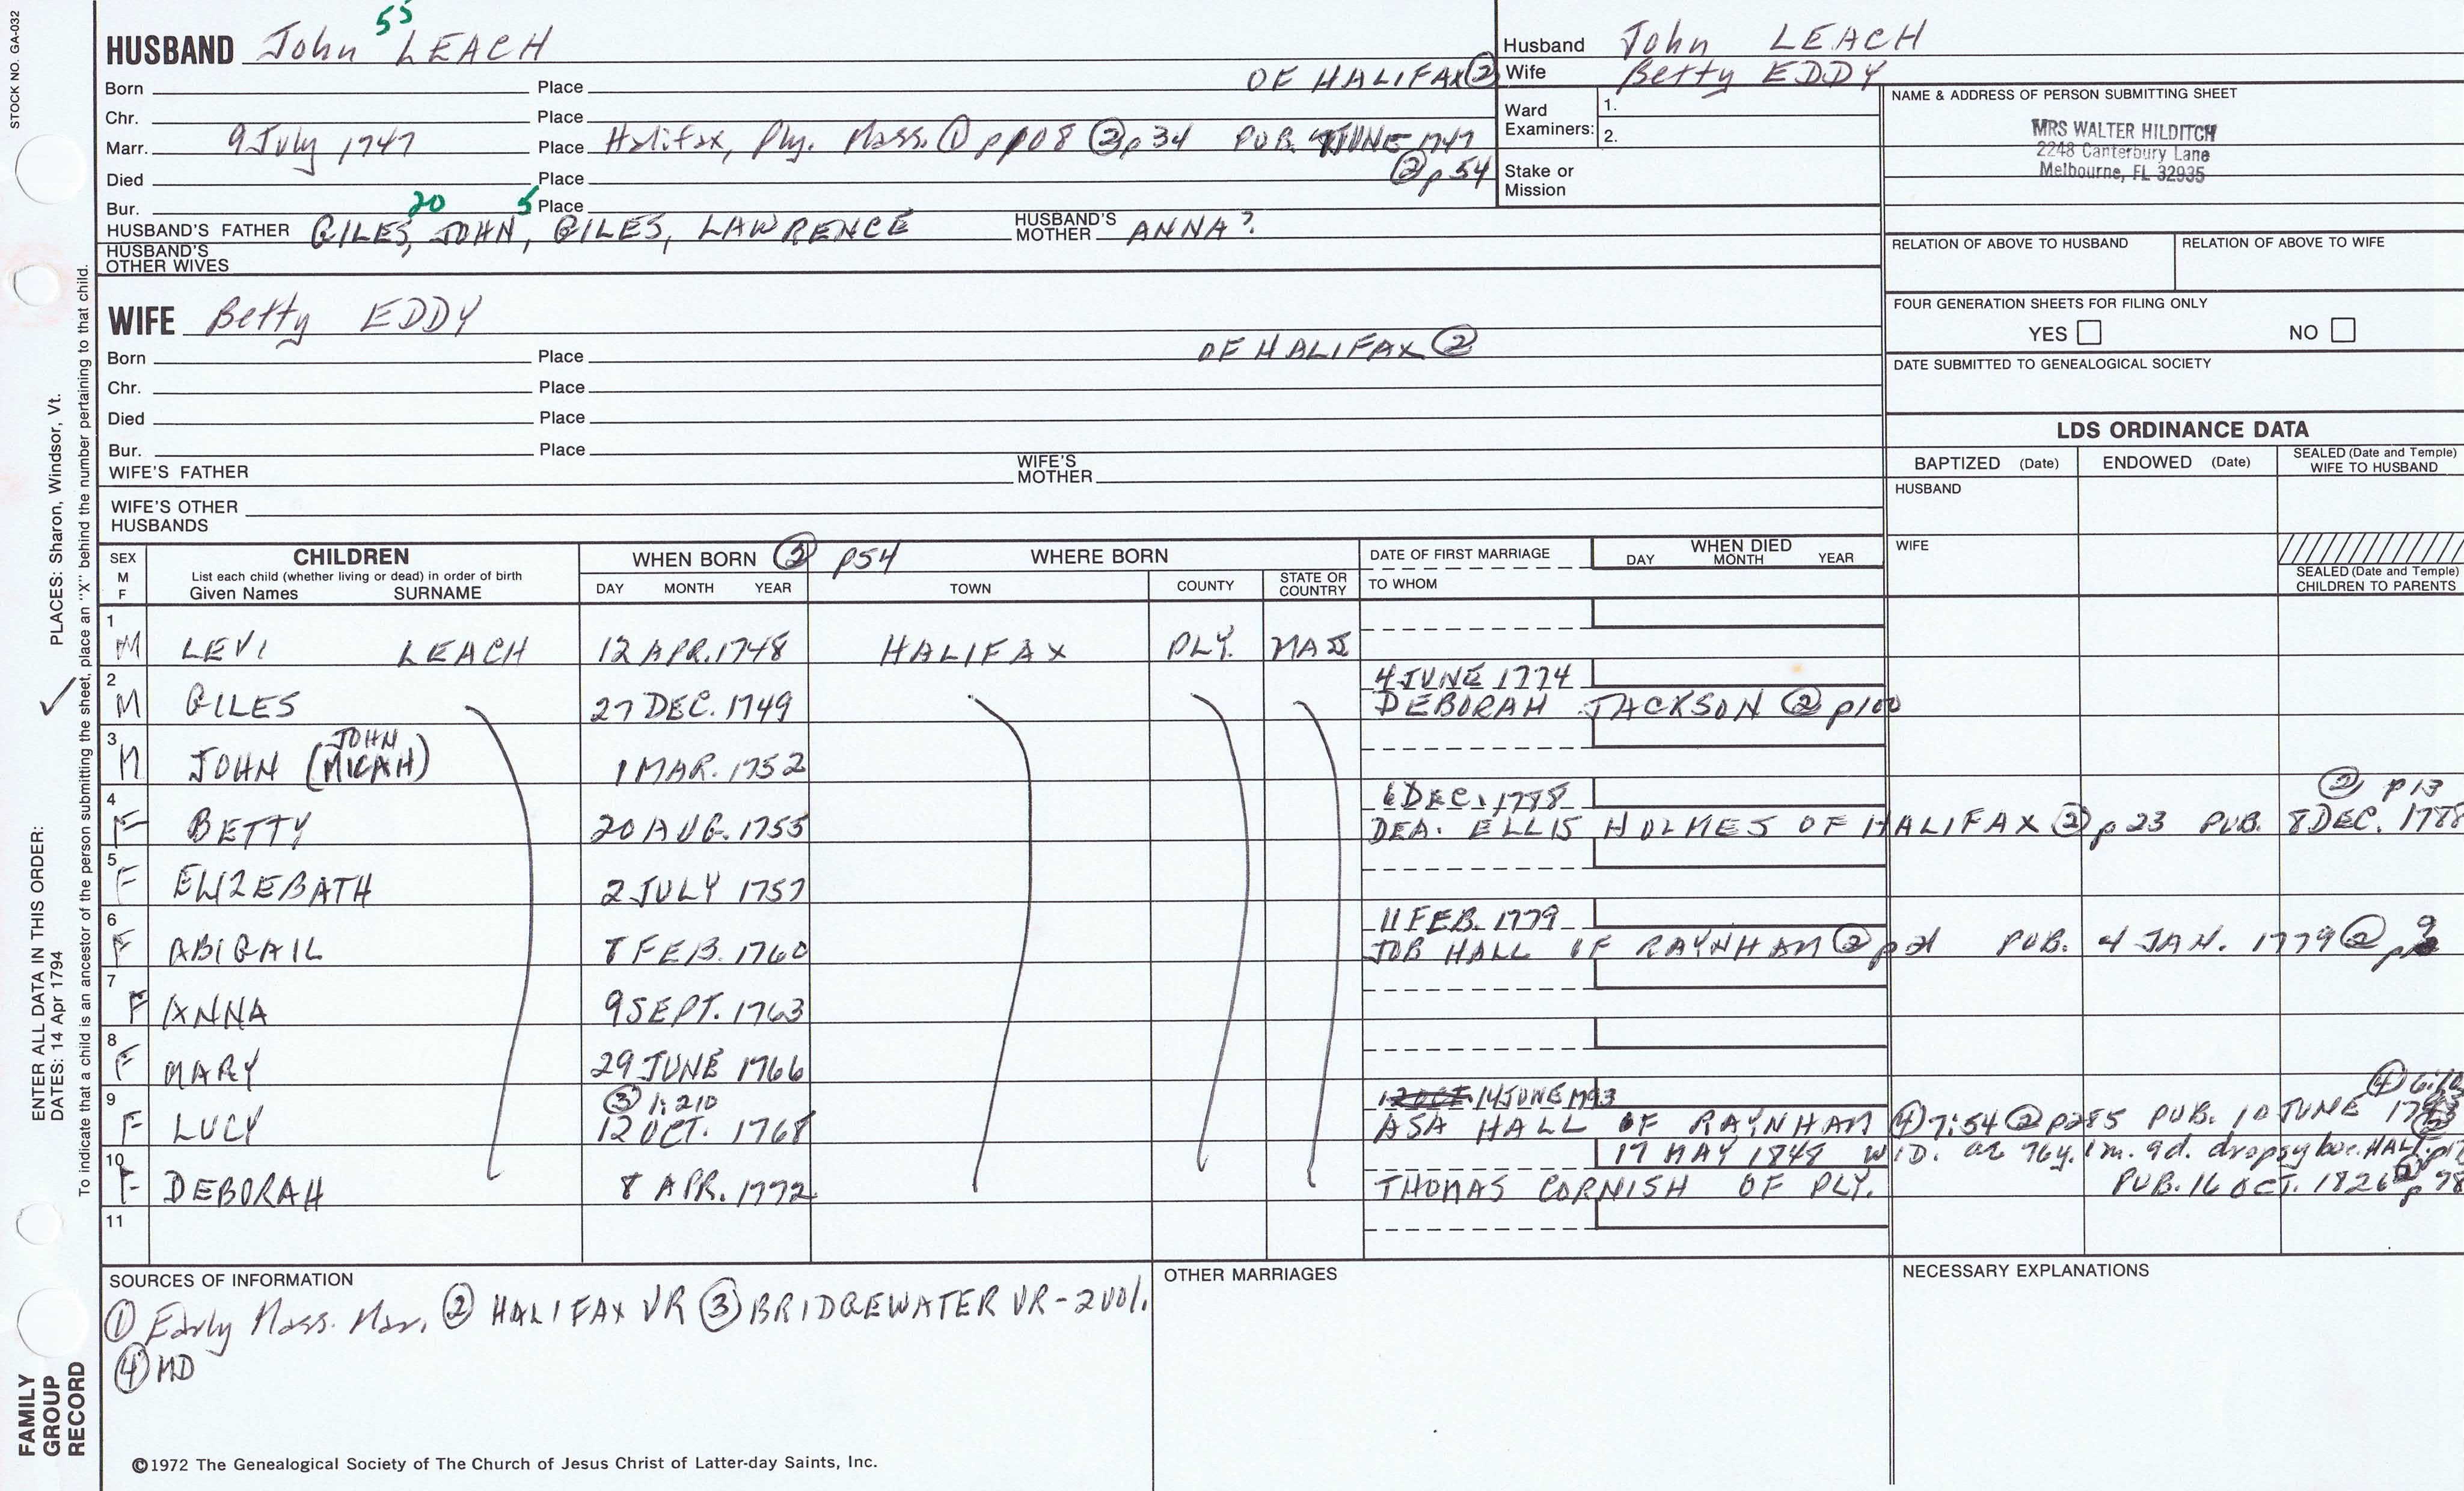 STOCK NO. GA-032
55
HUSBAND John LEACH
Born Place OF HALIFAX ②
Chr. Place
Marr. 9 July 1747 Place Halifax, Ply. Mass. ① p108 ② p34 PUB. JUNE 1747
Died Place ② p54
Bur. Place
20 5
HUSBAND'S FATHER GILES, JOHN, GILES, LAWRENCE HUSBAND'S MOTHER ANNA?
HUSBAND'S OTHER WIVES
WIFE Betty EDDY
Born Place OF HALIFAX ②
Chr. Place
Died Place
Bur. Place
WIFE'S FATHER WIFE'S MOTHER
WIFE'S OTHER HUSBANDS
Husband John LEACH
Wife Betty EDDY
Ward Examiners: 1.
2.
Stake or Mission
NAME & ADDRESS OF PERSON SUBMITTING SHEET
MRS WALTER HILDITCH
2248 Canterbury Lane
Melbourne, FL 32935
RELATION OF ABOVE TO HUSBAND RELATION OF ABOVE TO WIFE
FOUR GENERATION SHEETS FOR FILING ONLY
YES NO
DATE SUBMITTED TO GENEALOGICAL SOCIETY
LDS ORDINANCE DATA
BAPTIZED (Date) ENDOWED (Date) SEALED (Date and Temple) WIFE TO HUSBAND
HUSBAND
WIFE
SEALED (Date and Temple) CHILDREN TO PARENTS
SEX M F
CHILDREN
List each child (whether living or dead) in order of birth
Given Names SURNAME
WHEN BORN ② p54 WHERE BORN
DAY MONTH YEAR TOWN COUNTY STATE OR COUNTRY
DATE OF FIRST MARRIAGE
TO WHOM
WHEN DIED
DAY MONTH YEAR
1 M LEVI LEACH 12 APR. 1748 HALIFAX PLY. MASS
4 JUNE 1774
2 M GILES 27 DEC. 1749 DEBORAH JACKSON ② p100
JOHN
3 M JOHN (MICAH) 1 MAR. 1752
6 DEC. 1788 ② p13
4 F BETTY 20 AUG. 1755 DEA. ELLIS HOLMES OF HALIFAX ② p23 PUB. 8 DEC. 1788
5 F ELIZEBATH 2 JULY 1757
11 FEB. 1779
6 F ABIGAIL 8 FEB. 1760 JOB HALL OF RAYNHAM ② p21 PUB. 4 JAN. 1779 ② p9
7 F ANNA 9 SEPT. 1763
8 F MARY 29 JUNE 1766
③ 1:210 12 OCT. 14 JUNE 1793 ④
9 F LUCY 12 OCT. 1768 ASA HALL OF RAYNHAM ④ 7:54 ② p285 PUB. 10 JUNE
17 MAY 1848 WID. ae 76y. 1m. 9d. dropsy
10 F DEBORAH 8 APR. 1772 THOMAS CORNISH OF PLY. PUB. 16 OCT. 1826
11
SOURCES OF INFORMATION
① Early Mass. Mar. ② HALIFAX VR ③ BRIDGEWATER VR - 2 VOL.
④ MD
OTHER MARRIAGES
NECESSARY EXPLANATIONS
©1972 The Genealogical Society of The Church of Jesus Christ of Latter-day Saints, Inc.
FAMILY GROUP RECORD
ENTER ALL DATA IN THIS ORDER:
DATES: 14 Apr 1794 PLACES: Sharon, Windsor, Vt.
To indicate that a child is an ancestor of the person submitting the sheet, place an "X" behind the number pertaining to that child.